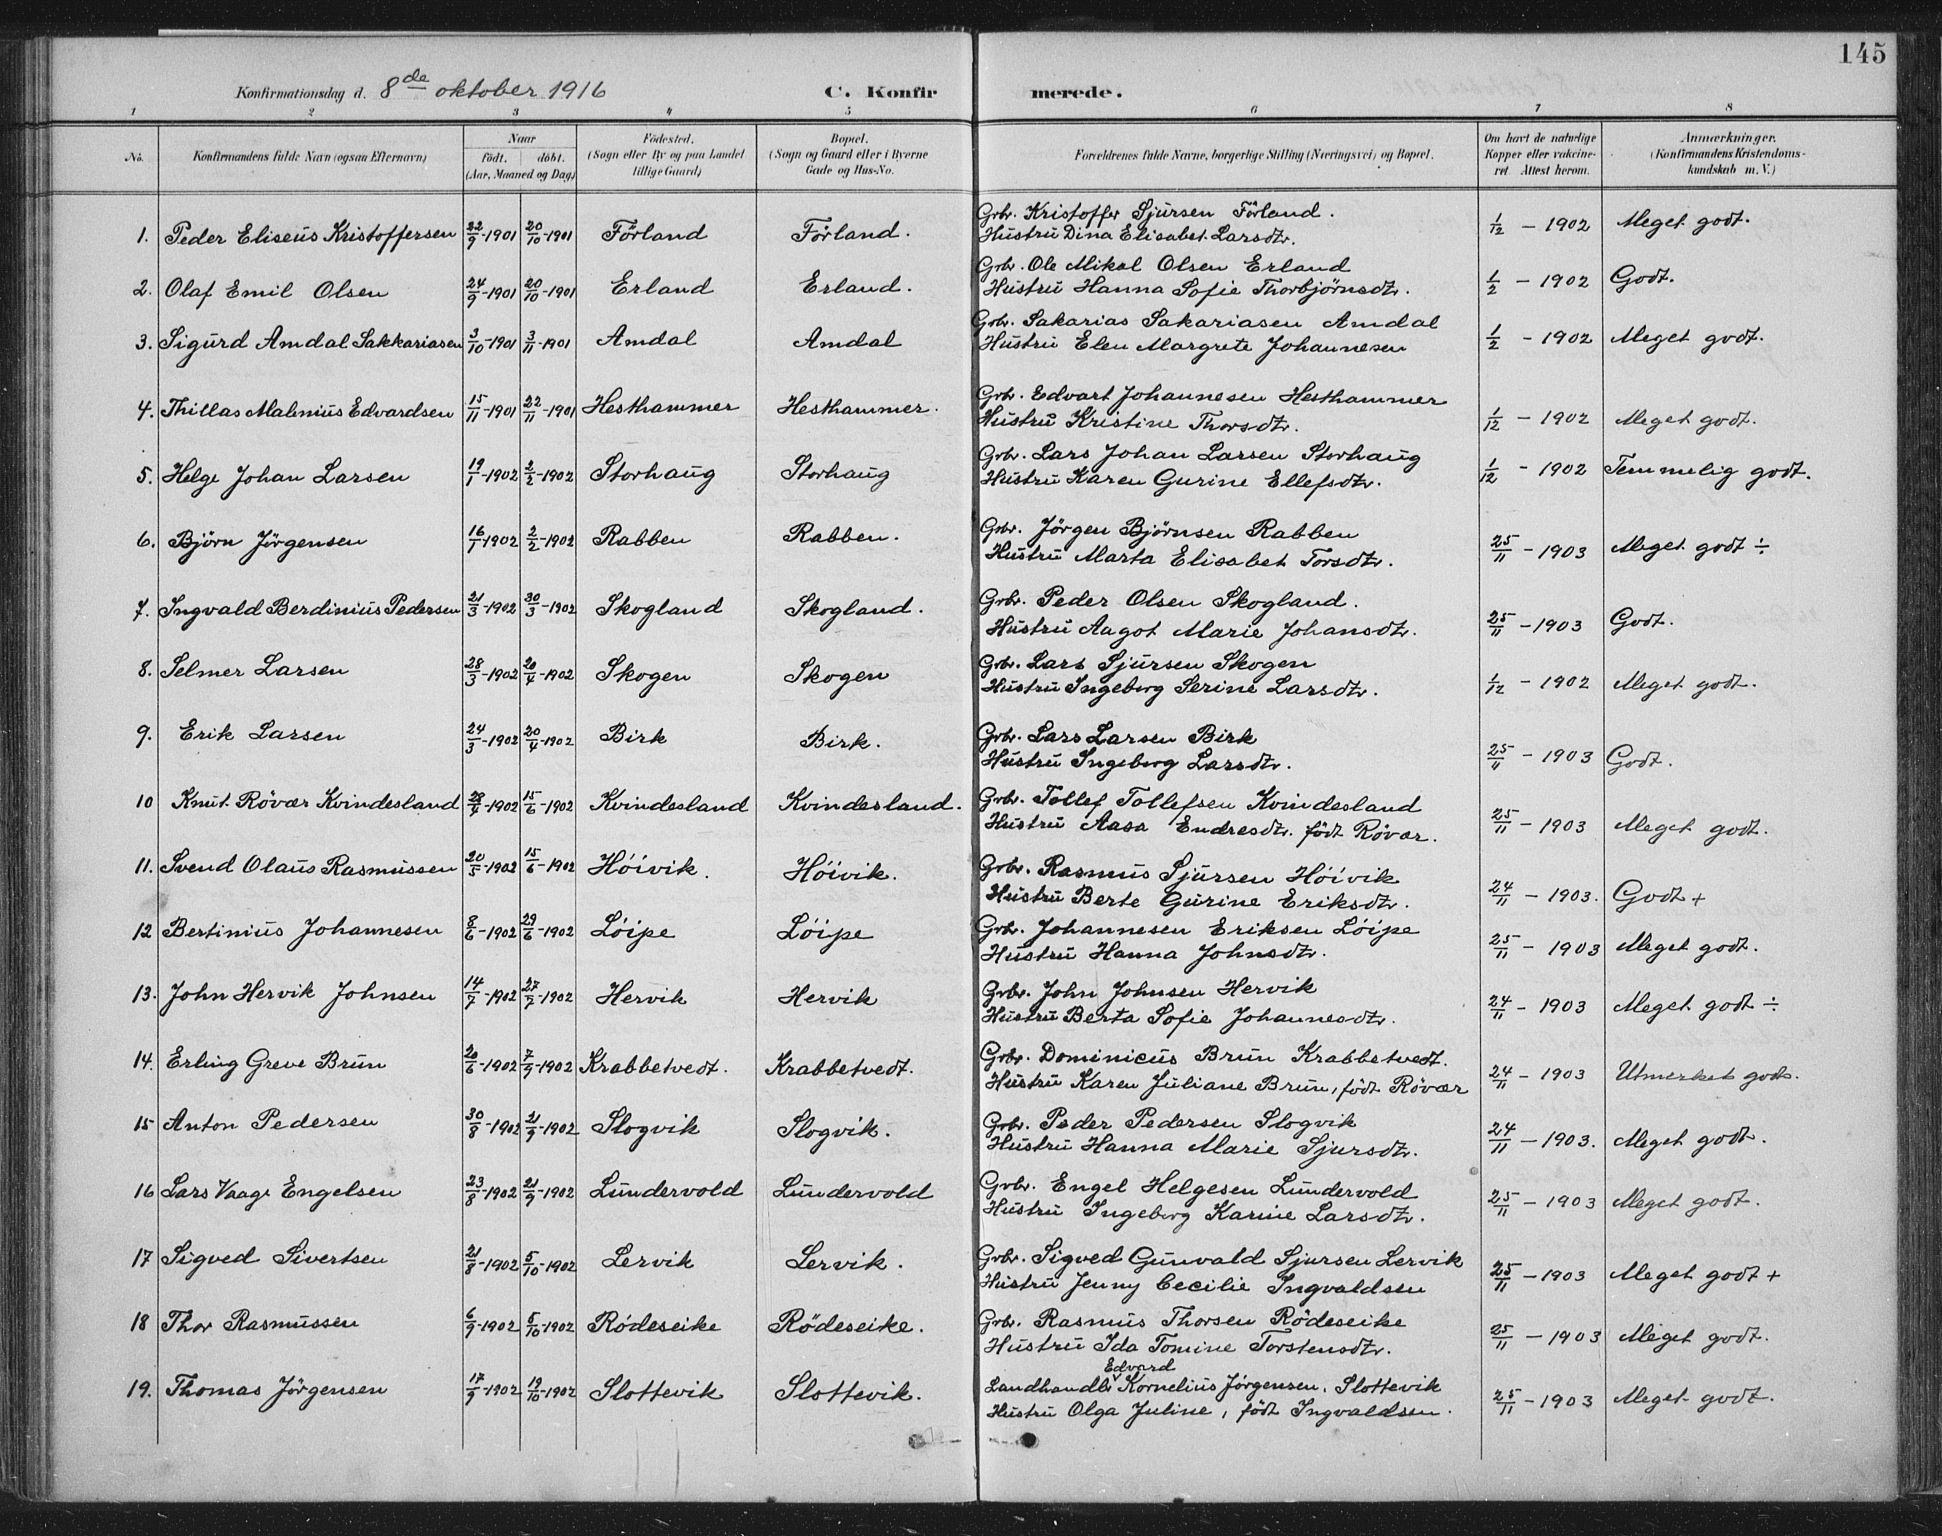 145
Konfirmationsdag d. 8de oktober 1916 C. Konfirmerede.
1 2 3 4 5 6 7 8
No. Konfirmandens fulde Navn (ogsaa Efternavn) Naar födt. döbt. (Aar, Maaned og Dag) Födested. (Sogn eller By og paa Landet tillige Gaard) Bopæl. (Sogn og Gaard eller i Byerne Gade og Hus-No. Forældrenes fulde Navne, borgerlige Stilling (Næringsvei) og Bopæl. Om havt de naturlige Kopper eller vakcineret. Attest herom. Anmærkninger. (Konfirmandens Kristendomskundskab m. V.)
1. Peder Eliseus Kristoffersen 22/9-1901 20/10-1901 Förland Förland. Grbr. Kristoffer Sjursen Förland. 1/12 - 1902 Meget godt.
Hustru Dina Elisabet Larsdtr.
2. Olaf Emil Olsen 24/9-1901 20/10-1901 Erland Erland. Grbr. Ole Mikal Olsen Erland 1/2 - 1902 Godt.
Hustru Hanna Sofie Thorbjørnsdtr.
3. Sigurd Amdal Sakkariasen 3/10-1901 3/11-1901 Amdal Amdal Grbr. Sakarias Sakariasen Amdal 1/2 - 1902 Meget godt.
Hustru Elen Margrete Johannesen
4. Thillas Malenius Edvardsen 15/11-1901 22/11-1901 Hesthammer Hesthammer. Grbr. Edvart Johannesen Hesthammer 1/12 - 1902 Meget godt.
Hustru Kristine Thorsdtr.
5. Helge Johan Larsen 19/1-1902 2/2-1902 Storhaug Storhaug Grbr. Lars Johan Larsen Storhaug 1/12 - 1902 Temmelig godt.
Hustru Karen Gurine Ellefsdtr.
6. Björn Jörgensen 16/1-1902 2/2-1902 Rabben Rabben. Grbr. Jörgen Bjørnsen Rabben 25/11 - 1903 Meget godt ÷
Hustru Marta Elisabet Torsdtr.
7. Ingvald Berdinius Pedersen 21/3-1902 30/3-1902 Skogland Skogland. Grbr. Peder Olsen Skogland. 25/11 - 1903 Godt.
Hustru Aagot Marie Johansdtr.
8. Selmer Larsen 28/3-1902 20/4-1902 Skogen Skogen Grbr. Lars Sjursen Skogen 1/12 - 1902 Meget godt.
Hustru Ingeborg Serine Larsdtr.
9. Erik Larsen 24/3-1902 20/4-1902 Birk Birk. Grbr. Lars Larsen Birk 25/11 - 1903 Godt.
Hustru Ingeborg Larsdtr.
10 Knut Rövær Kvindesland 28/4-1902 15/6-1902 Kvindesland Kvindesland. Grbr. Tollef Tollefsen Kvindesland 25/11 - 1903 Meget godt.
Hustru Aasa Endresdtr. födt Rövær.
11. Svend Olaus Rasmussen 20/5-1902 15/6-1902 Höivik. Höivik. Grbr. Rasmus Sjursen Höivik 24/11 - 1903. Godt +
Hustru Berte Gurine Eriksdtr.
12 Bertinius Johannesen 8/6-1902 29/6-1902 Löipe Löipe Grbr. Johannesen Eriksen Löipe 25/11 - 1903 Meget godt.
Hustru Hanna Johnsdtr.
13. John Hervik Johnsen 14/7-1902 27/7-1902 Hervik Hervik Grbr. John Johnsen Hervik 24/11 - 1903 Meget godt ÷
Hustru Berta Sofie Johannesdtr.
14. Erling Greve Brun 20/6-1902 7/9-1902 Krabbetvedt. Krabbetvedt. Grbr. Dominicus Brun Krabbetvedt. 24/11 - 1903 Utmerket godt.
Hustru Karen Juliane Brun, födt Rövær
15 Anton Pedersen 30/8-1902 21/9-1902 Slogvik Slogvik. Grbr. Peder Pedersen Slogvik 24/11 - 1903. Meget godt.
Hustru Hanna Marie Sjursdtr.
16 Lars Vaage Engelsen 23/8-1902 21/9-1902 Lundervold Lundervold Grbr. Engel Helgesen Lundervold 25/11 - 1903 Meget godt.
Hustru Ingeborg Karine Larsdtr.
17 Sigved Sivertsen 21/8-1902 5/10-1902 Lervik Lervik. Grbr. Sigved Gunvald Sjursen Lervik 25/11 - 1903 Meget godt +
Hustru Jenny Cecilie Ingvaldsen
18 Thor Rasmussen 6/9-1902 5/10-1902 Rödeseike Rödeseike. Grbr. Rasmus Thorsen Rödeseike 25/11 - 1903 Meget godt.
Hustru Ida Tomine Torstensdtr.
19. Thomas Jörgensen 17/9-1902 19/10-1902 Slottevik Slottevik. Landhandler Edvard Kornelius Jörgensen. Slottevik 25/11 - 1903 Meget godt.
Hustru Olga Juline, födt Ingvaldsen.